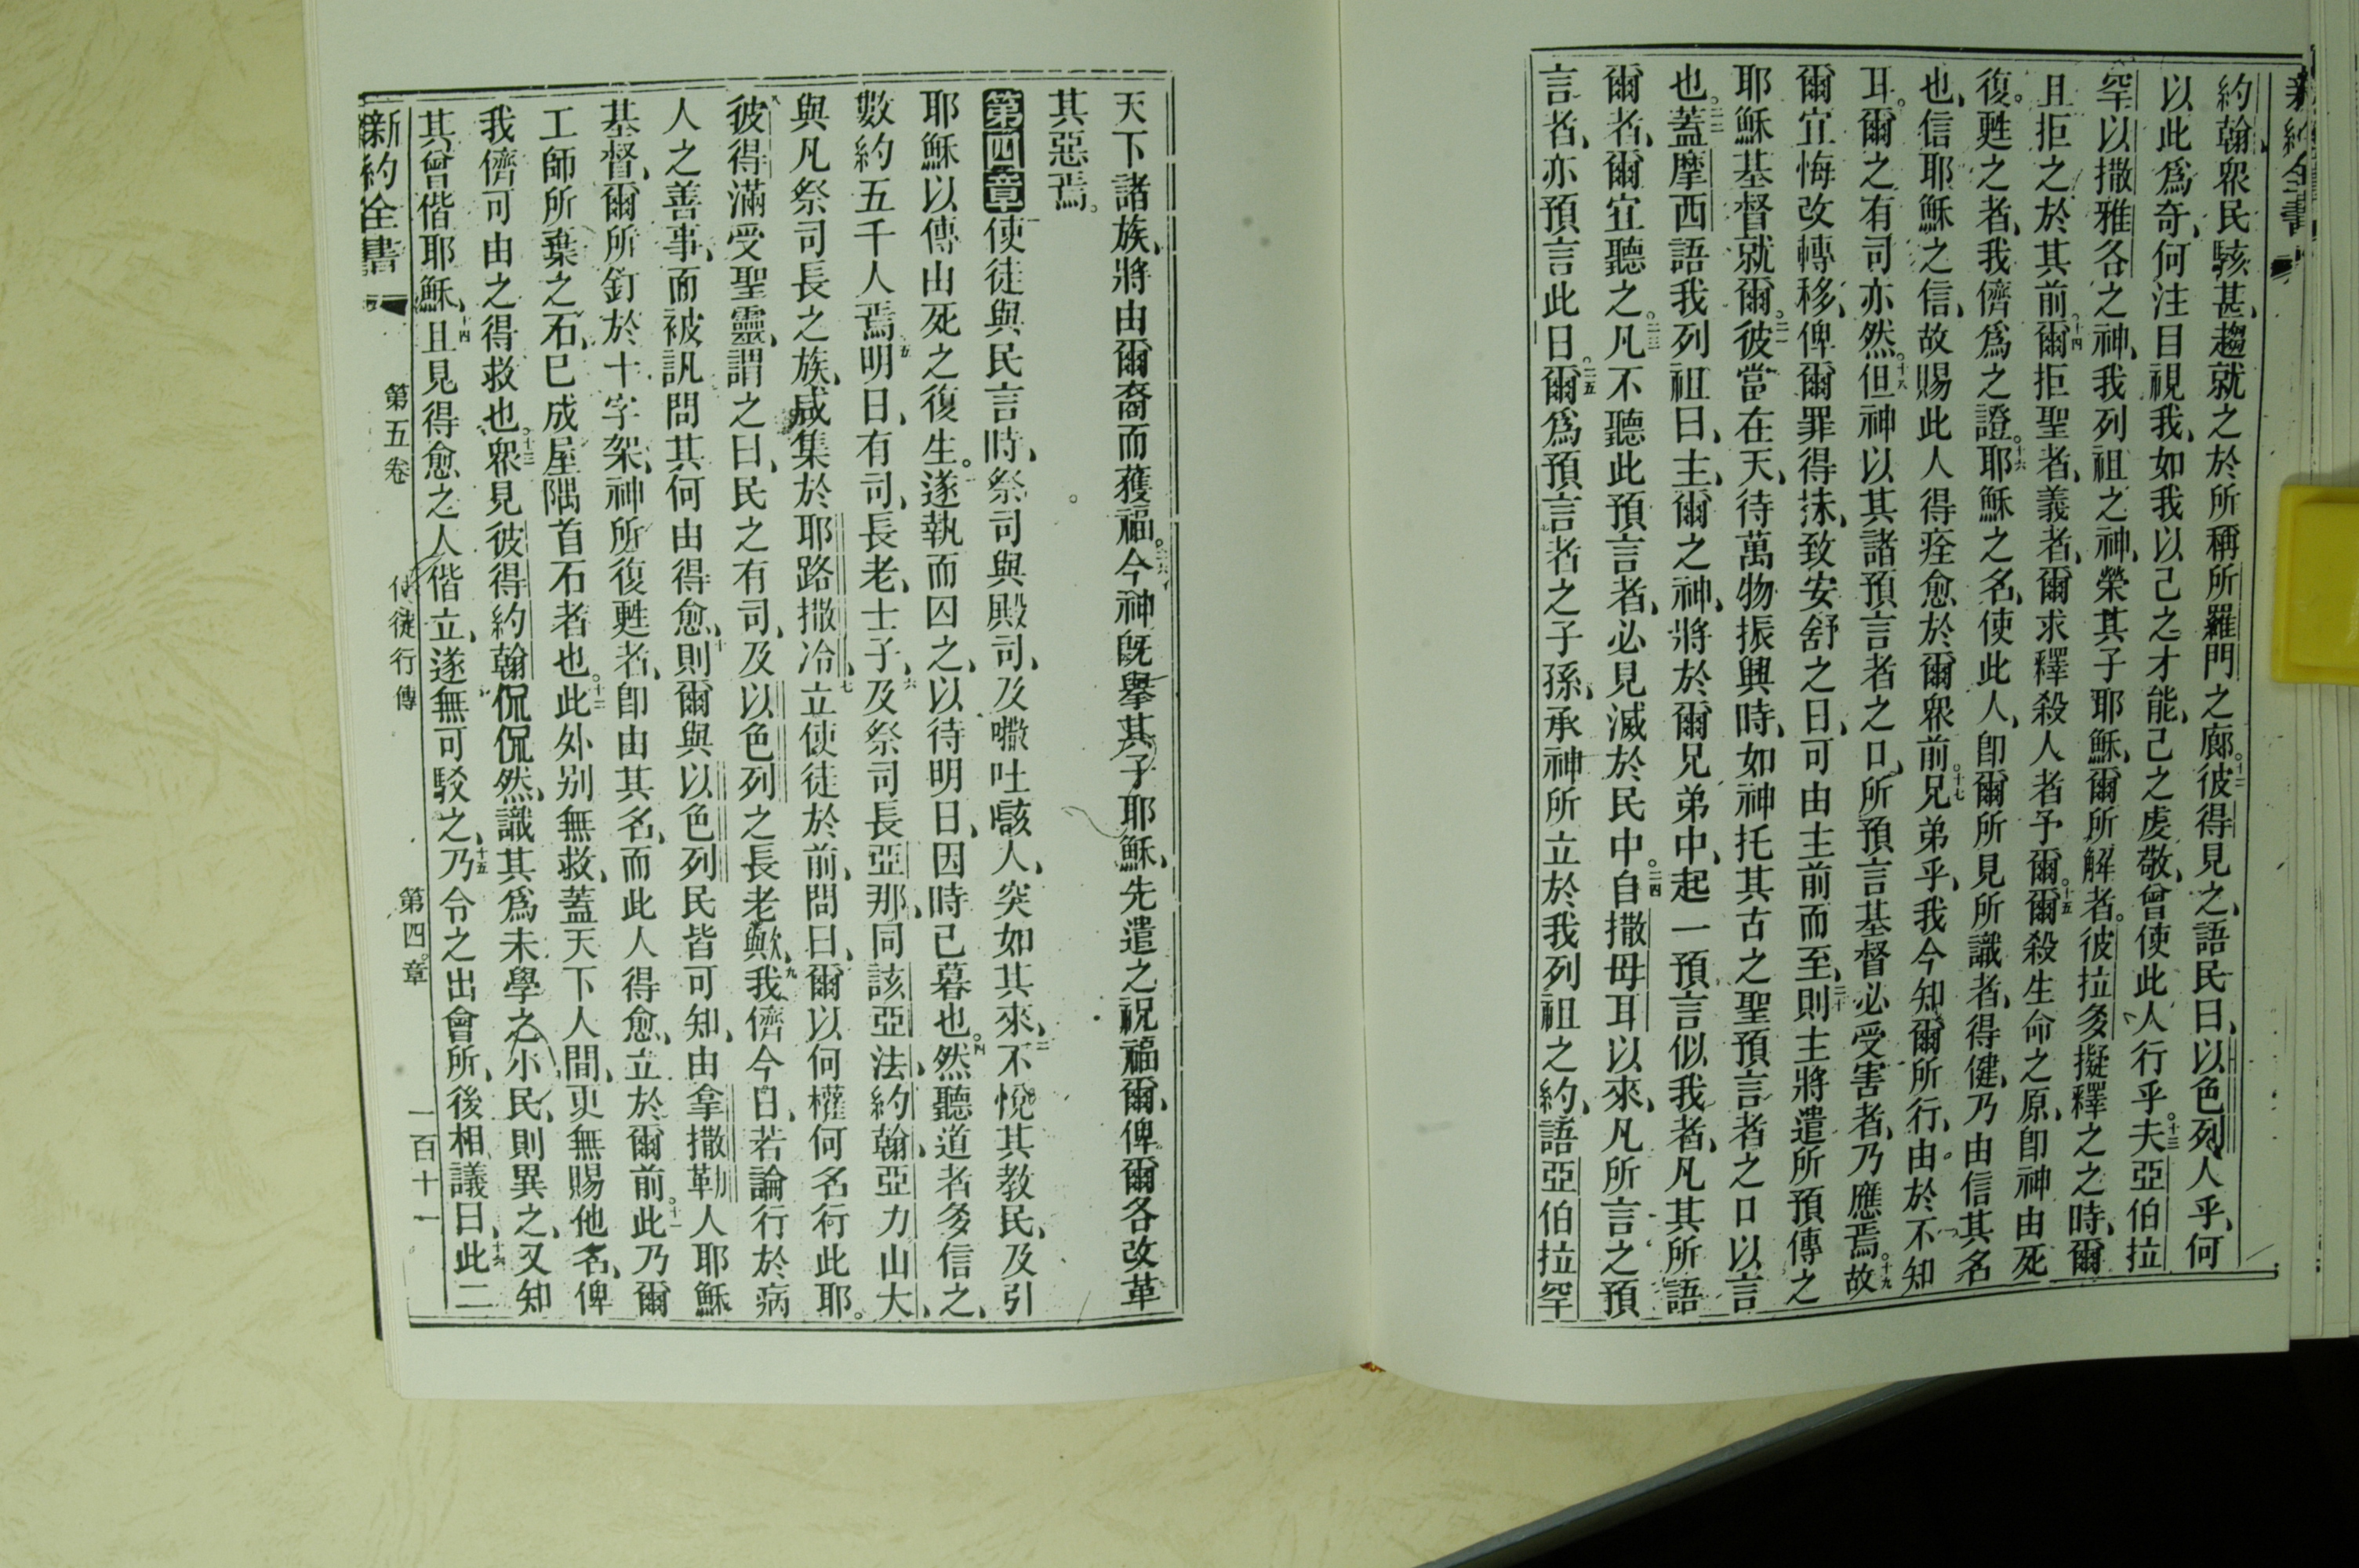 新約全書
約翰、眾民駭甚、趨就之於所稱所羅門之廊。十二彼得見之、語民曰、以色列人乎、何
以此爲奇、何注目視我、如我以己之才能、己之虔敬、曾使此人行乎。十三夫亞伯拉
罕以撒雅各之神、我列祖之神、榮其子耶穌、爾所解者。彼拉多擬釋之之時、爾
且拒之於其前。十四爾拒聖者、義者、爾求釋殺人者予爾。十五爾殺生命之原、卽神由死
復甦之者、我儕爲之證。十六耶穌之名、使此人、卽爾所見所識者、得健、乃由信其名
也、信耶穌之信、故賜此人得痊愈於爾眾前。十七兄弟乎、我今知爾所行、由於不知
耳。爾之有司亦然。十八但神以其諸預言者之口、所預言基督必受害者、乃應焉。十九故
爾宜悔改轉移、俾爾罪得抹、致安舒之日、可由主前而至、二十則主將遣所預傳之
耶穌基督就爾。二一彼當在天、待萬物振興時、如神托其古之聖預言者之口以言
也。二二蓋摩西語我列祖曰、主、爾之神、將於爾兄弟中、起一預言似我者、凡其所語
爾者、爾宜聽之。二三凡不聽此預言者、必見滅於民中。二四自撒母耳以來、凡所言之預
言者、亦預言此日。二五爾爲預言者之子孫、承神所立於我列祖之約、語亞伯拉罕
天下諸族、將由爾裔而獲福。二六今神旣舉其子耶穌、先遣之祝福爾、俾爾各改革
其惡焉。
第四章 使徒與民言時、祭司與殿司、及㘔吐㗢人、突如其來、二不悅其教民、及引
耶穌以傳由死之復生。遂執而囚之、以待明日、因時已暮也。四然聽道者多信之、
數約五千人焉。五明日、有司、長老、士子、六及祭司長亞那、同該亞法、約翰、亞力山大、
與凡祭司長之族、咸集於耶路撒冷、七立使徒於前、問曰、爾以何權何名行此耶。
八彼得滿受聖靈、謂之曰、民之有司、及以色列之長老歟、九我儕今日、若論行於病
人之善事、而被訊問其何由得愈、十則爾與以色列民皆可知、由拿撒勒人耶穌
基督、爾所釘於十字架、神所復甦者、卽由其名、而此人得愈、立於爾前。十一此乃爾
工師所棄之石、已成屋隅首石者也。十二此外別無救、蓋天下人間、更無賜他名、俾
我儕可由之得救也。十三眾見彼得約翰侃侃然、識其爲未學之小民、則異之、又知
其曾偕耶穌、十四且見得愈之人偕立、遂無可駁之、十五乃令之出會所、後相議曰、十六此二
新約全書 第五卷 使徒行傳 第四章 一百十一